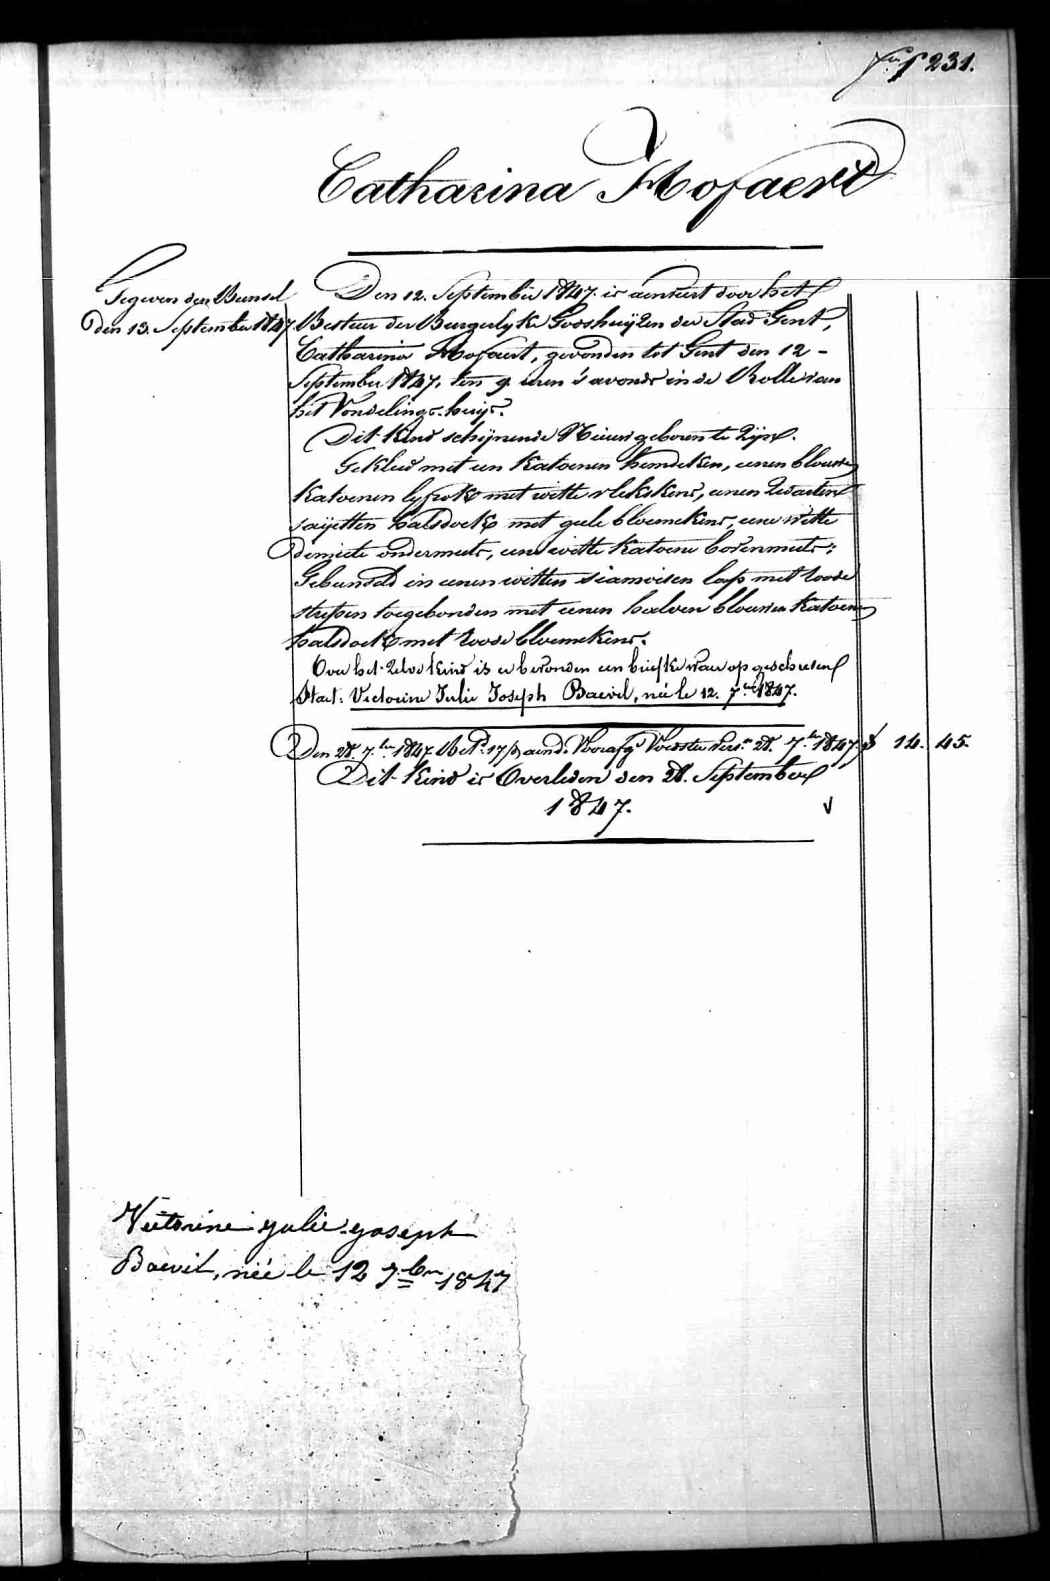 f° 231.
Catharina Hofaert
Gegeven den Bunsel
Den 13. September 1847.
Den 12. September 1847. is aenveert door het
Bestuer der Burgerlyke Godshuijzen der Stad Gent,
Catharina Hofaert, gevonden tot Gent den 12 -
September 1847, ten 9 uren s'avonds in de Rolle van
het Vondelings-huijs.
Dit Kind schijnende Nieuw geboren te Zijn.
Gekleed met een Katoenen hemdeken, eenen blauwen
Katoenen lyfrok met witte vlekskens, eenen Zwarten
saijetten halsdoek met geele bloemekens, eene witte
demiete ondermuts, eene witte Katoene bovenmuts;
Gebunseld in eenen witten siamoisen lap met roode
strepen toegebonden met eenen halven blauwen Katoenen
halsdoek met roode bloemekens.
Over het Zelve kind is er bevonden een briefke waer op geschreven
Staet: Victorine Julie Joseph Baevil, née le 12. 7bre 1847.
Den 28. 7bre 1847 17 aend. Voorafg. 28. 7bre 1847. 14. 45.
Dit Kind is Overleden den 28. September
1847.
Victorine Julie Joseph
Baevil, née le 12 7bre 1847